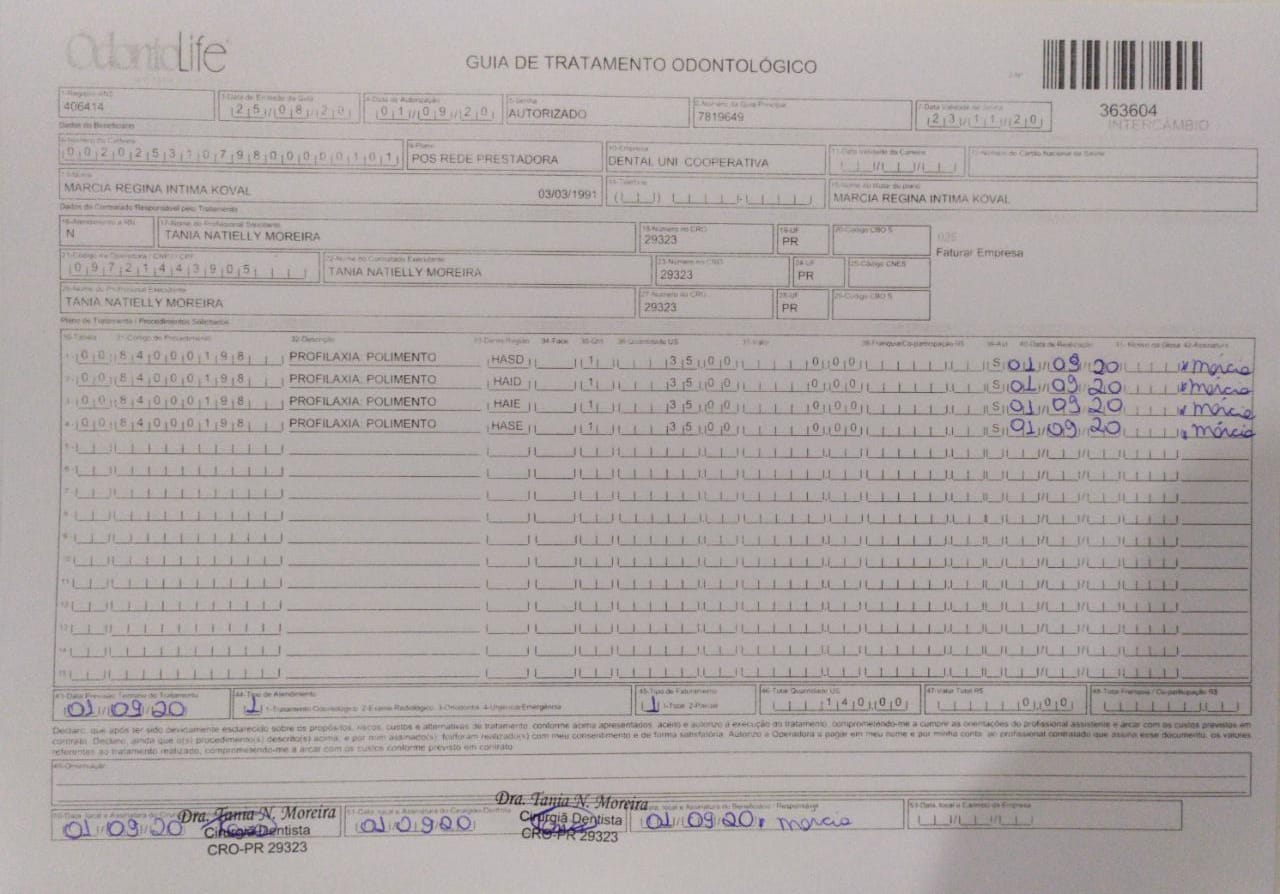 OdontoLife
GUIA DE TRATAMENTO ODONTOLÓGICO
2-Nº
363604
INTERCÂMBIO
1-Registro ANS
406414
3-Data de Emissão da Guia
25/08/20
4-Data de Autorização
01/09/20
5-Senha
AUTORIZADO
6-Número da Guia Principal
7819649
7-Data Validade da Senha
23/11/20
Dados do Beneficiário
8-Número da Carteira
00202531079800000101
9-Plano
POS REDE PRESTADORA
10-Empresa
DENTAL UNI COOPERATIVA
11-Data Validade da Carteira
12-Número do Cartão Nacional de Saúde
MARCIA REGINA INTIMA KOVAL 03/03/1991
14-Telefone
15-Nome do titular do plano
MARCIA REGINA INTIMA KOVAL
Dados do Contratado Responsável pelo Tratamento
16-Atendimento a RN
N
17-Nome do Profissional Solicitante
TANIA NATIELLY MOREIRA
18-Número no CRO
29323
19-UF
PR
20-Código CBO S
025
Faturar Empresa
21-Código na Operadora / CNPJ / CPF
09721443905
22-Nome do Contratado Executante
TANIA NATIELLY MOREIRA
23-Número no CRO
29323
24-UF
PR
25-Código CNES
26-Nome do Profissional Executante
TANIA NATIELLY MOREIRA
27-Número no CRO
29323
28-UF
PR
29-Código CBO S
Plano de Tratamento / Procedimentos Solicitados
30-Tabela 31-Código do Procedimento 32-Descrição 33-Dente/Região 34-Face 35-Qtd 36-Quantidade US 37-Valor 38-Franquia/Co-participação R$ 39-Aut 40-Data de Realização 41-Motivo da Glosa 42-Assinatura
1- 00 84000198 PROFILAXIA: POLIMENTO HASD 1 35 00 0 00 S 01/09/20 x Márcia
2- 00 84000198 PROFILAXIA: POLIMENTO HAID 1 35 00 0 00 S 01/09/20 x Márcia
3- 00 84000198 PROFILAXIA: POLIMENTO HAIE 1 35 00 0 00 S 01/09/20 x Márcia
4- 00 84000198 PROFILAXIA: POLIMENTO HASE 1 35 00 0 00 S 01/09/20 x Márcia
5-
6-
7-
8-
9-
10-
11-
12-
13-
14-
15-
43-Data Previsão Término do Tratamento
01/09/20
44-Tipo de Atendimento
1 1-Tratamento Odontológico 2-Exame Radiológico 3-Ortodontia 4-Urgência/Emergência
45-Tipo de Faturamento
1 1-Total 2-Parcial
46-Total Quantidade US
140 00
47-Valor Total R$
0 00
48-Total Franquia / Co-participação R$
Declaro, que após ter sido devidamente esclarecido sobre os propósitos, riscos, custos e alternativas de tratamento, conforme acima apresentados, aceito e autorizo a execução do tratamento, comprometendo-me a cumprir as orientações do profissional assistente e arcar com os custos previstos em
contrato. Declaro, ainda que o(s) procedimento(s) descrito(s) acima, e por mim assinado(s), foi/foram realizado(s) com meu consentimento e de forma satisfatória. Autorizo a Operadora a pagar em meu nome e por minha conta, ao profissional contratado que assina esse documento, os valores
referentes ao tratamento realizado, comprometendo-me a arcar com os custos conforme previsto em contrato.
49-Observação
01/09/20
Dra. Tania N. Moreira
Cirurgiã Dentista
CRO-PR 29323
51-Data, local e Assinatura do Cirurgião Dentista
01/09/20
Dra. Tania N. Moreira
Cirurgiã Dentista
CRO-PR 29323
local e Assinatura do Beneficiário / Responsável
01/09/20 x Marcia
53-Data, local e Carimbo da Empresa